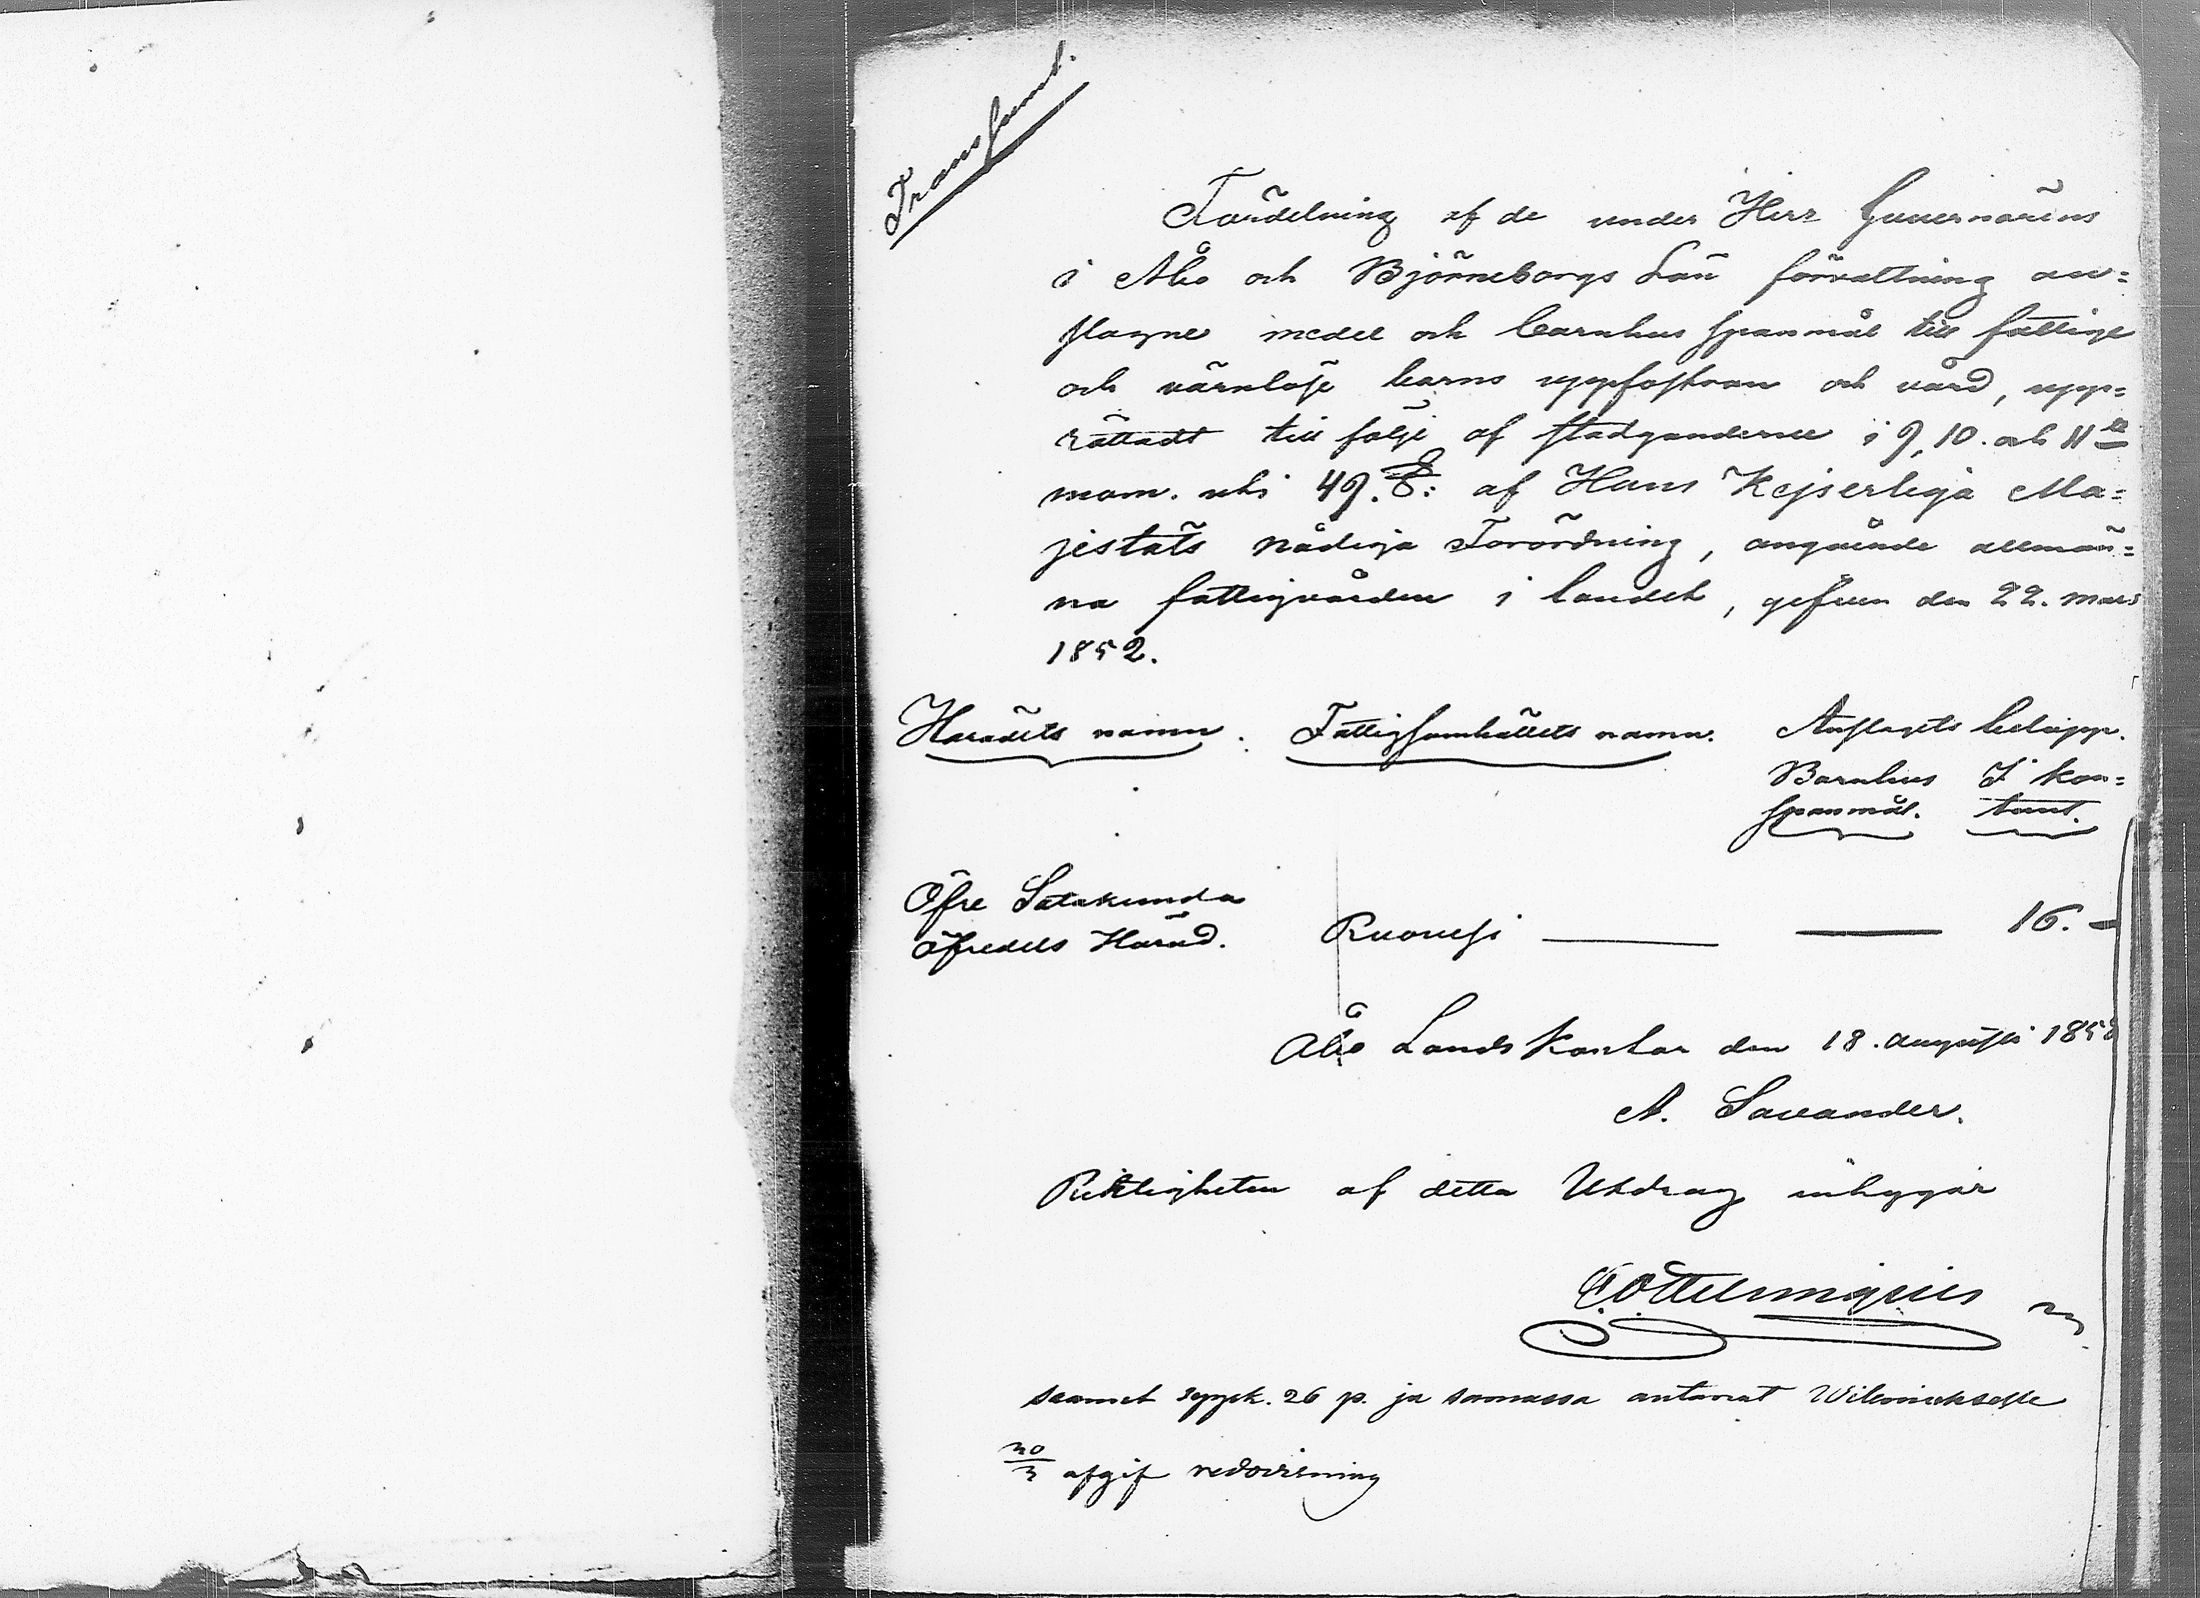 Transsumt.
Fördelning af de under Herr Guvernörens
i Åbo och Björneborgs Län förvaltning an=
slagne medel och barnhus spanmål till fattige
och värnlöse barns uppfostran och vård, upp=
rättadt till följe af stadganderne i 9, 10. och 11
mom. uti 49. §: af Hans Kejserliga Ma=
jestäts nådiga Förordning, angående allmän=
na fattigvården i landet, gifven den 22. mars
1852.
Häradets namn. Fattigsamhällets namn. Anslagets belopp.
Barnhus I kon=
spanmål. tant.
Öfre Satakunda
öfredels Härad. Ruovesi 16. —
Åbo Lands Kontor den 18. augusti 185
A. Savander.
Riktigheten af detta Utdrag intygar
saanut syysk. 26 p. ja samassa antanut
30/3 afgif redovisning